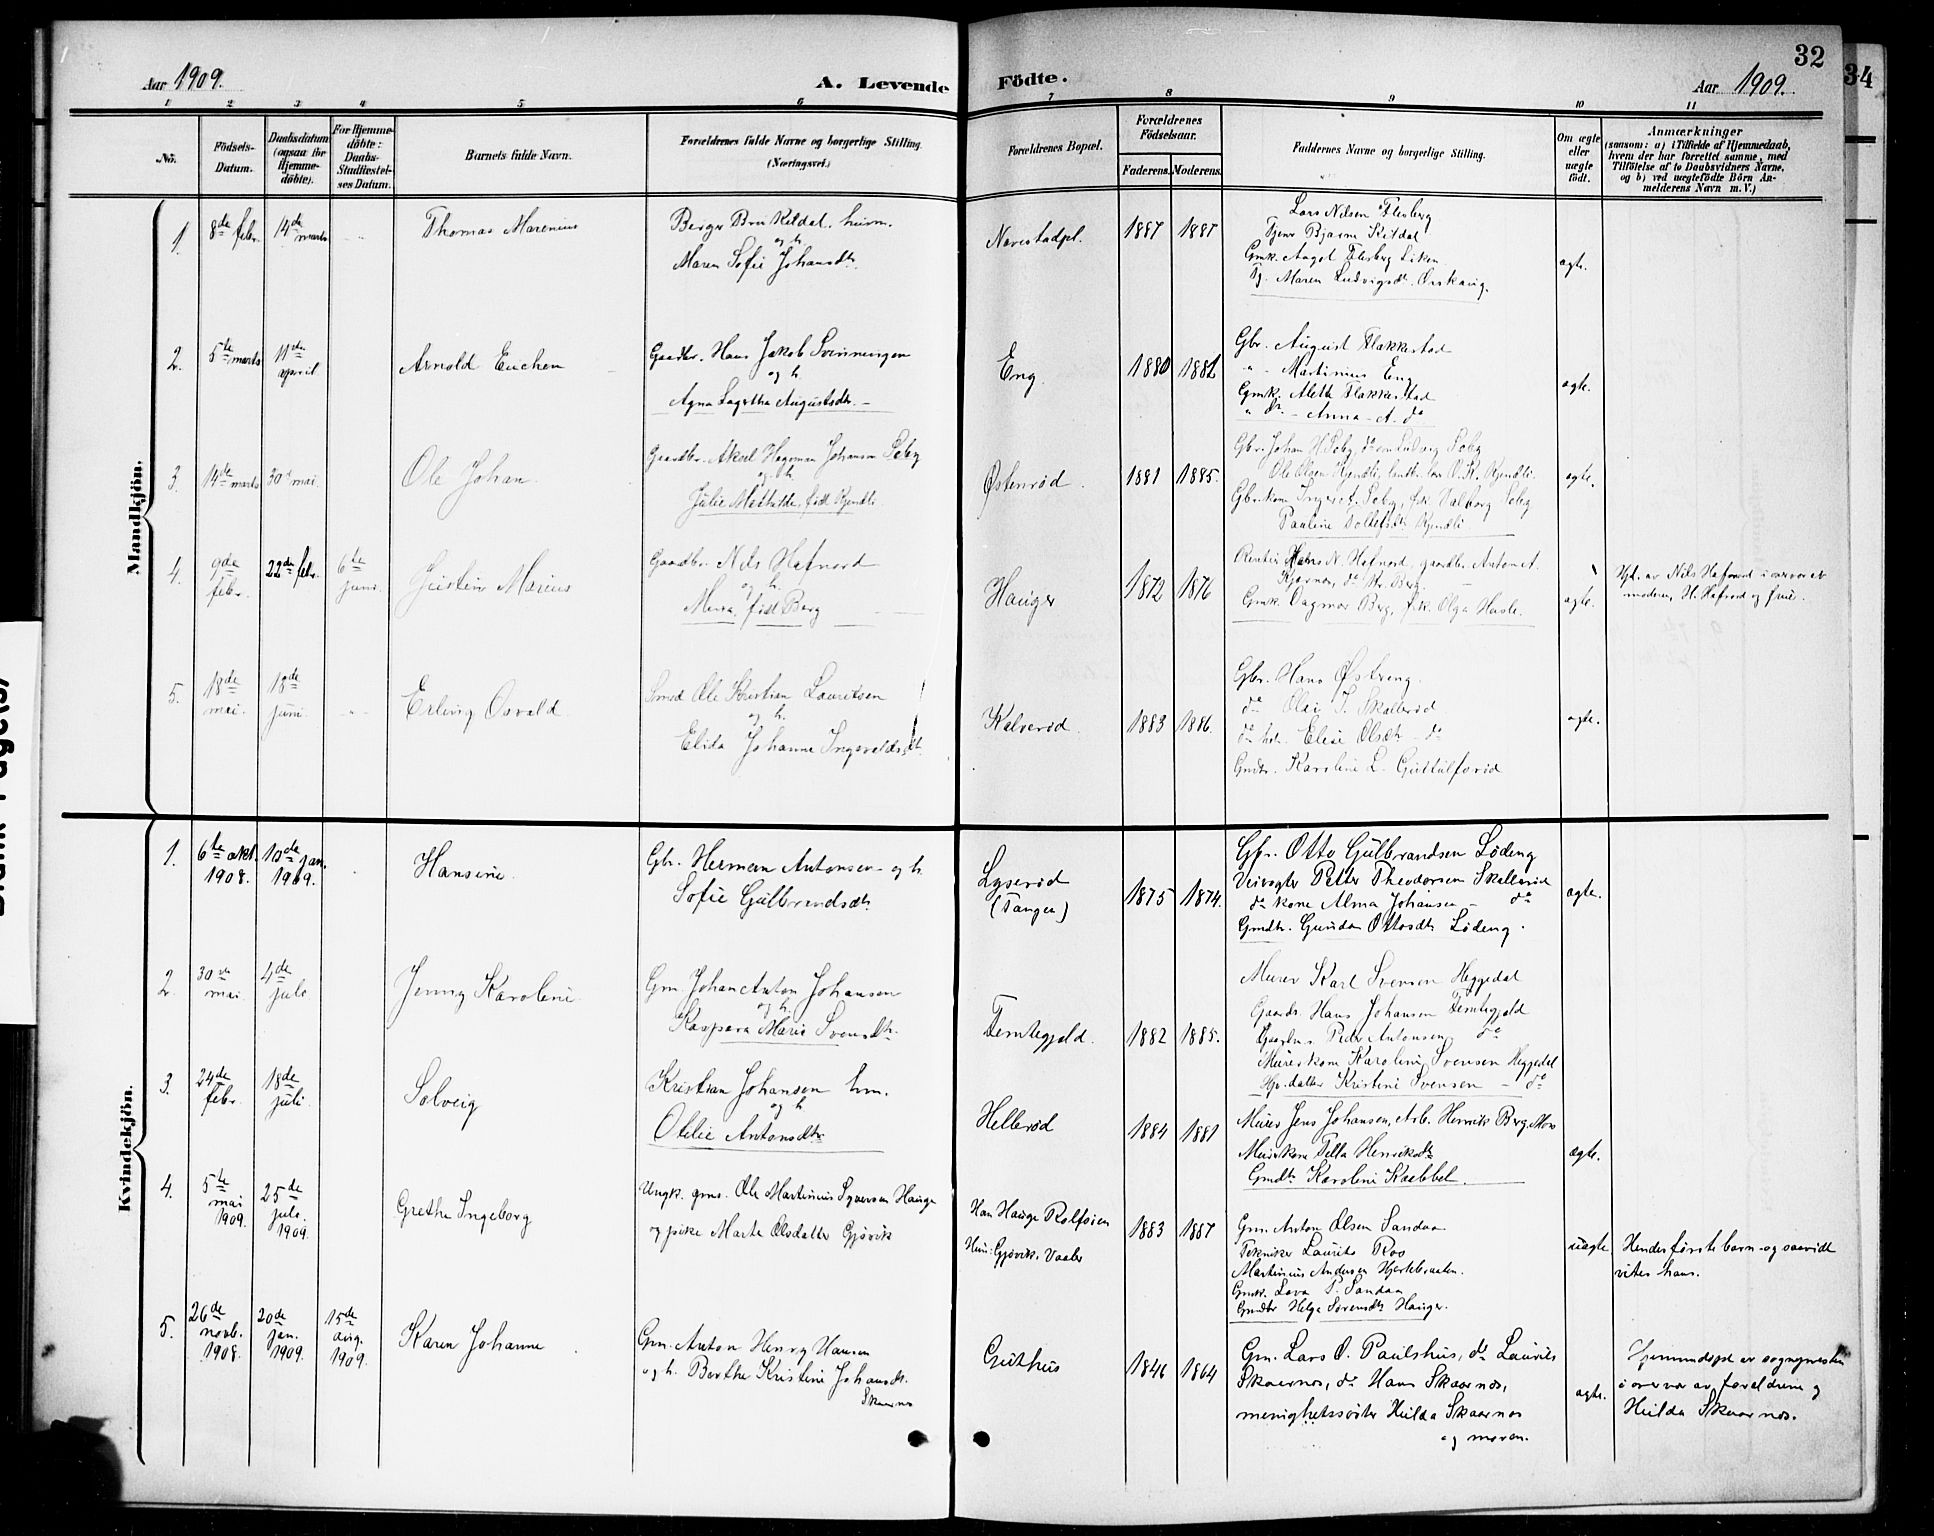 Aar 1909.
A. Levende Födte.
Aar 1909.
32
34
1 2 3 4 5 6 7 8 9 10 11
No.
Födsels-Datum.
Daabsdatum (ogsaa for Hjemmedöbte).
For Hjemmedöbte: Daabs-Stadfæstelses Datum.
Barnets fulde Navn.
Forældrenes fulde Navne og borgerlige Stilling. (Næringsvei.)
Forældrenes Bopæl.
Forældrenes Födselsaar.
Faderens. Moderens.
Faddernes Navne og borgerlige Stilling.
Om ægte eller uægte födt.
Anmærkninger
(saasom: a) i Tilfælde af Hjemmedaab, hvem der har forrettet samme, med Tilföielse af to Daabsvidners Navne, og b) ved uægtefödte Börn Anmelderens Navn m. V.)
Mandkjön.
1. 8de febr. 14de marts Thomas Marenius
Birger Bru Kildal, huum.
og h.
Maren Sofie Johansdtr.
Navestadpl. 1887 1887
Lars Nilsen Flesberg
Tjener Bjarne Kildal
Gmk. Aagot Flesberg
Maren Ludvigsdtr.
ægte.
2. 5te marts 11te april Arnold Euchen
Gaardbr. Hans Jakob Svenningsen
og h.
Agna Lagertha Augustsdtr.
Eng. 1880 1881
Gbr. August Flakkestad
" - Martinius Eng
Gmk. Alette Flakkestad
" dr. - Anna - A. do
ægte.
3. 14de marts 30te mai. Ole Johan.
Gaardbr. Aksel Hageman Johansen Seby
og h.
Julie Mathilde, född Kjendli.
Østenrød. 1881 1885.
Gbr. Johan H. Seby, Ludvig Seby
Ole Olsen Kjendli,
Gbr.kone Seby, Valborg Seby
Pauline Kjendli
ægte.
4. 9de febr. 22de febr. 6te juni Justein Marius
Gaardbr. Nils Hafnord
og h.
Mina, född Berg
Hauger 1872 1876
Rentier Hans N. Hafnord, gaardbr. Anton A.
Kjærnes, do Kr. Berg.
Gmk. Dagmar Berg, fik. Olga Husle.
ægte.
Hjd. av Nils Hafnord i overvær av
moderen, H. Hafnord og frue.
5. 18de mai. 18de juni. Erling Osvald
Smed Ole Kristian Lauritsen
og h.
Elida Johanne Ingvaldsdtr.
Kalverød. 1883 1886.
Gbr. Hans Østreng.
do Olai T. Skallerød.
Elise Olsen do
Gmdtr. Karoline L. Guttulsrød
ægte.
Kvindekjön.
1. 6te okt. 1908. 10de jan. 1909. Hansine.
Gbr. Herman Antonsen og h.
Sofie Gulbrandsdtr.
Lyserød (Tangen) 1875 1874.
Gbr. Otto Gulbrandsen Lødeng
Veivogter Petter Theodorsen Skallerød
do kone Alma Johansen - do
Gmdtr. Gunda Ottosdtr. Lødeng.
ægte.
2. 30te mai. 4de juli Jenny Karoline
Gm. Johan Anton Johansen
og h.
Kaspara Marie Svensdtr.
Femtegjeld. 1882 1885.
Murer Karl Svensen Heggedal
Gaardbr. Hans Johansen Femtegjeld
Peder Antonsen do
Murerskone Karoline Svensen Heggedal
Kristine Svensen - do
3. 24de febr. 18de juli. Solveig
Kristian Johansen hm.
og h.
Otilie Antonsdtr.
Hellerød 1884 1881
Murer Jens Johansen, Arb. Henrik Berg, Moss
Murerskone Tella Henriksdtr.
Gmdtr. Karoline Kaebbel.
ægte.
4. 5te mai 1909. 25de juli. 1909. Grethe Ingeborg
Ungk. gms. Ole Martinius Syversen Hauge
og pike Marte Olsdatter Gjøvik
Han Hauge Rolfsøien
Hun: Gjøvik, Vaaler
1883 1887
Gm. Anton Olsen Sandaa
Tekniker Laurits Roo
Martinius Andersen Hjertebraaten.
Gmk. Lova P. Sandaa
Gmdtr Helga Sørensdtr. Hauger.
uægte. Hendes første barn - og saavidt
vites hans.
5. 26de novb. 1908. 20de jan. 1909. 15de aug. 1909. Karen Johanne
Gm. Anton Henry Hansen
og h. Berthe Kristine Johansdtr.
Skaarnes
Guthus 1846 1864
Gm. Lars O. Paulshus, do Laurits
Skaarnes, do Hans Skaarnes,
menighetssøster Hulda Skaarnes
og moren.
ægte.
Hjemmedøpt av sognepresten
i overvær av forældrene og
Hulda Skaarnes.